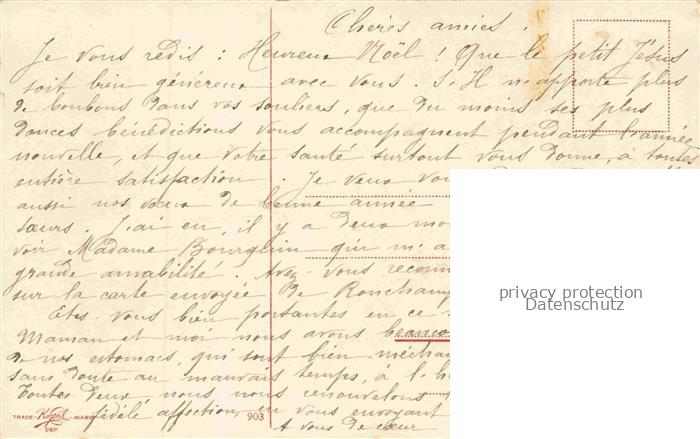 Chères amies.
Je vous redis : Heureux Noël ! Que le petit Jésus
soit bien généreux avec vous. S'Il n'apporte plus
de bonbons dans vos souliers, que du moins ses plus
douces bénédictions vous accompagnent pendant l'année
nouvelle, et que votre santé surtout vous donne, à toutes
entière satisfaction. Je veux vou
aussi nos vœux de bonne année
sœurs. J'ai eu, il y a deux mo
voir Madame Bourquin qui m'a
grande amabilité. Avez-vous reconn
sur la carte envoyée de Ronchamp
Êtes-vous bien portantes en ce
Maman et moi nous avons beauco
de nos estomacs, qui sont bien mécha
sans doute au mauvais temps, à l'h
Toutes deux nous nous renouvelons
fidèle affection en vous envoyant
A vous de cœur
privacy protection
Datenschutz
TRADE- Royal -MARK
DEP.
903